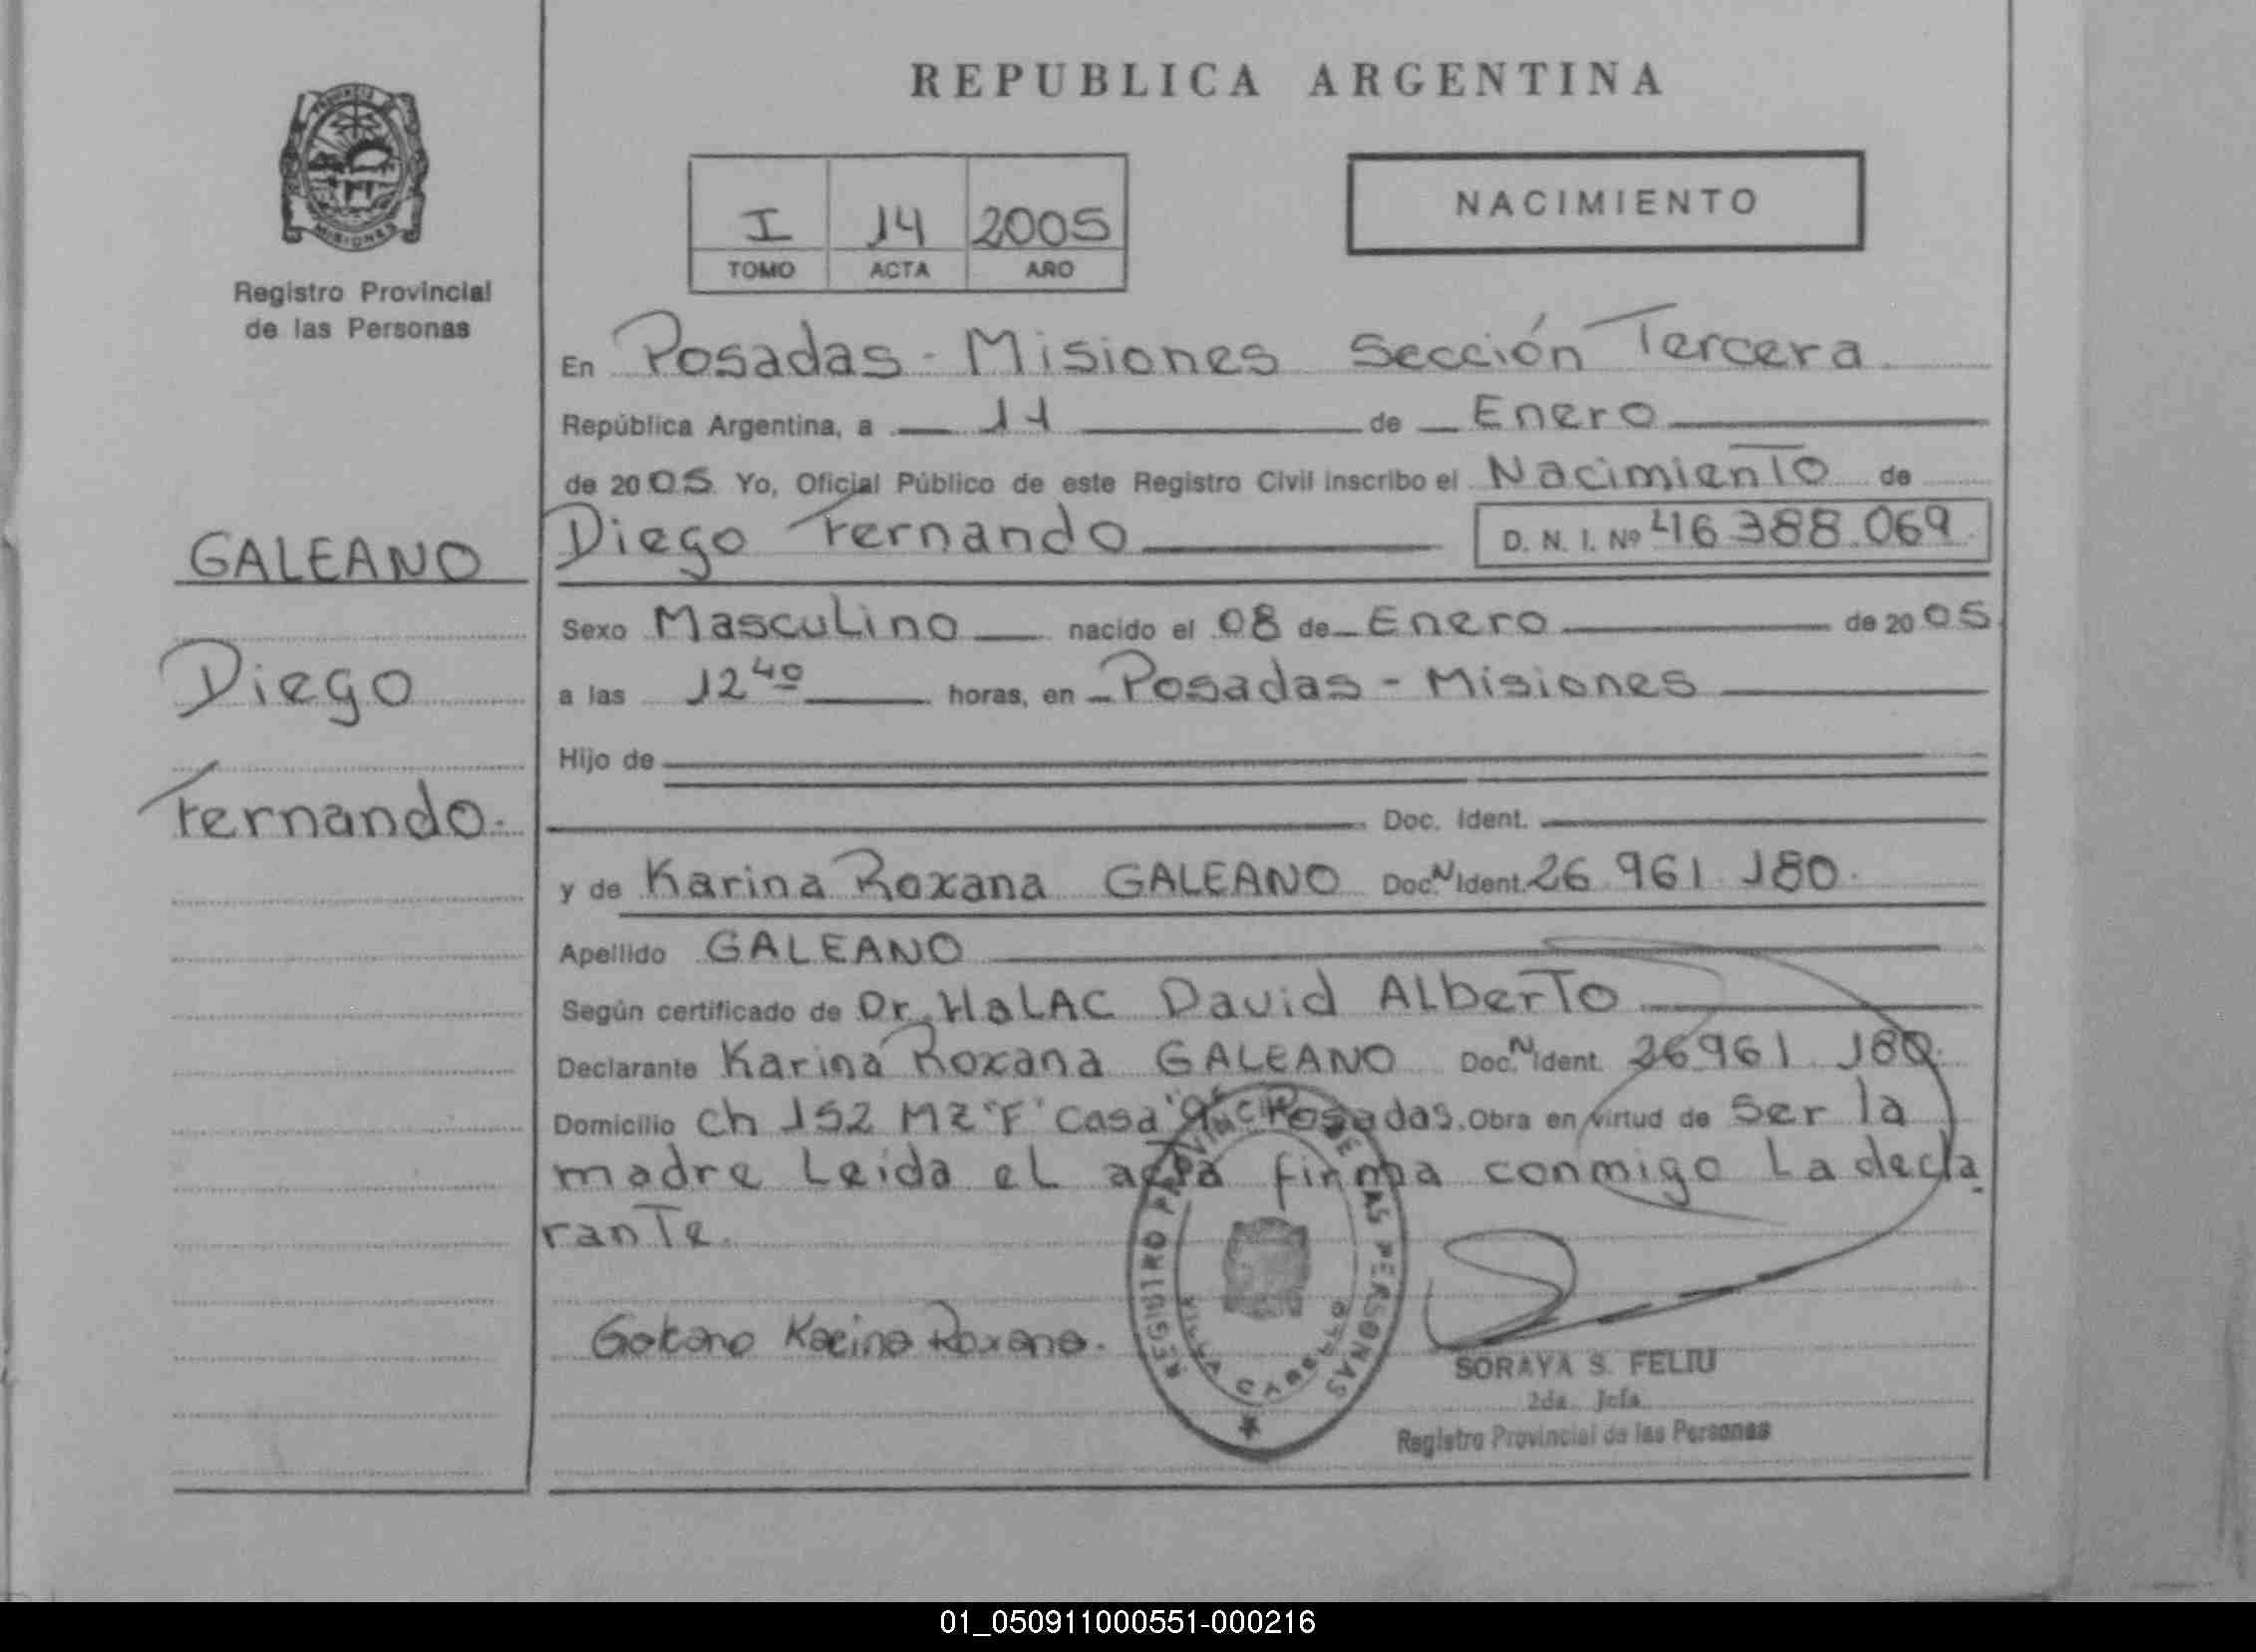 REPUBLICA ARGENTINA
PROVINCIA DE MISIONES
Registro Provincial
de las Personas
I 14 2005
TOMO ACTA AÑO
NACIMIENTO
En Posadas - Misiones Sección Tercera
República Argentina, a 11 de Enero
de 2005 Yo, Oficial Público de este Registro Civil inscribo el Nacimiento de
Diego Fernando D. N. I. Nº 46 388.069
Sexo Masculino nacido el 08 de Enero de 2005
a las 12 40 horas, en Posadas - Misiones
Hijo de
Doc. Ident.
y de Karina Roxana GALEANO Doc. N Ident. 26 961 180.
Apellido GALEANO
Según certificado de Dr. HaLAC David ALberTo
Declarante Karina Roxana GALEANO Doc. N Ident. 26961.180.
Domicilio Ch 152 MZ "F" Casa Posadas. Obra en virtud de Ser la
madre Leida eL acta firma conmigo La decla
ranTe.
GALEANO
Diego
Fernando.
Galeano Karina Roxana.
REGISTRO PROVINCIAL DE LAS PERSONAS
VILLA CABELLO
SORAYA S. FELIU
2da. Jefa
Registro Provincial de las Personas
01_050911000551-000216